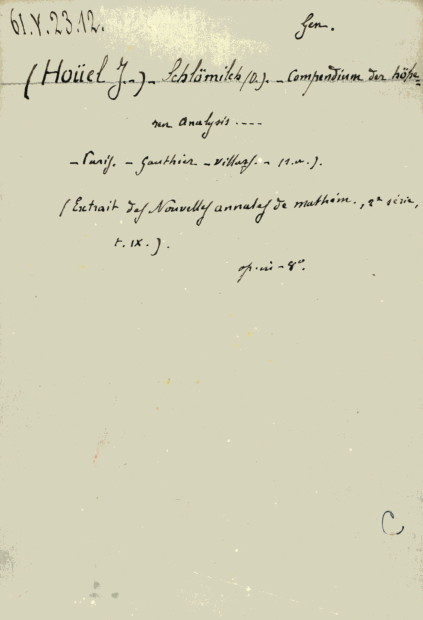 61.V.23.12.
Gen.
(Hoüel J.-)- Schlömilch (O.). - Compendium der höhe=
ren Analysis ----
- Paris. - Gauthier - Villars. - (s.a.).
(Extrait des Nouvelles annales de mathém., 2e série,
t. IX.).
op. in - 8°.
C